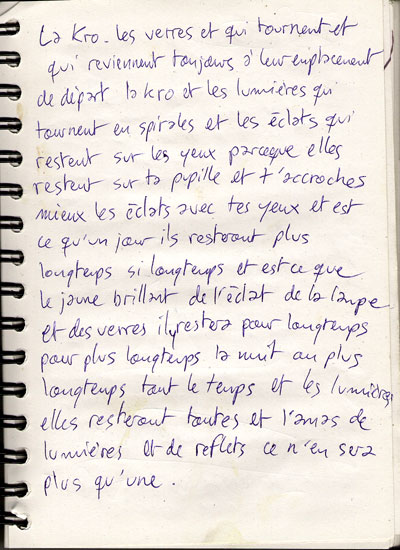 La Kro. les verres et qui tournent et
qui reviennent toujours à leur emplacement
de départ la kro et les lumières qui
tournent en spirales et les éclats qui
restent sur les yeux parceque elles
restent sur ta pupille et t'accroches
mieux les éclats avec tes yeux et est
ce qu'un jour ils resteront plus
longtemps si longtemps et est ce que
le jaune brillant de l'éclat de la lampe
et des verres il y restera pour longtemps
pour plus longtemps la nuit au plus
longtemps tout le temps et les lumières
elles resteront toutes et l'amas de
lumières et de reflets ce n'en sera
plus qu'une.